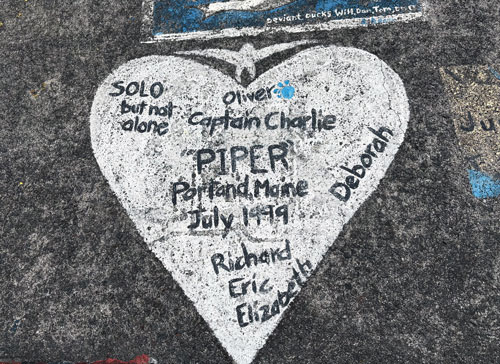 Deviant Ducks Will, Don, Tom,
SOLO
but not
alone
Oliver
Captain Charlie
"PIPER"
Portland, Maine
July 1999
Deborah
Richard
Eric
Elizabeth
Ju